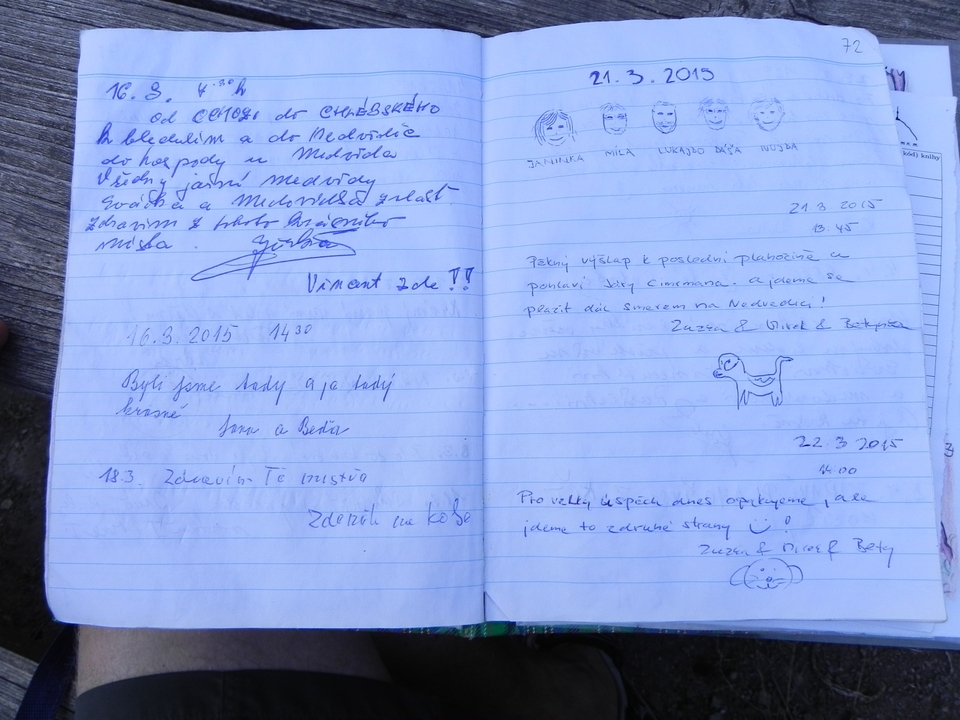 16.3. 4.30 h
do CHLÉBSKÉHO
k bledulím a do Nedvědic
do hospody u Medvěda
Všechny jarní medvědy
zvlášť
zdravím z tohoto krásného
místa.
Vincent zde !!
16.3.2015 14 30
Byli jsme tady a je tady
krásně
Jana a Beďa
18.3. Zdravím Tě
Zdeněk na kole
72
21.3.2015
MÍLA LUKAJDO DÁŠA
21 3 2015
13.45
Pěkný výšlap k poslední plahočině a
pohlaví Járy Cimrmana. a jdeme se
plazit dál směrem na Nedvědici!
Zuzka & Mirek &
22.3 2015
14.00
Pro velký úspěch dnes opakujeme, ale
jdeme to z druhé strany !
Zuzka & Mirek & Bety
kód) knihy